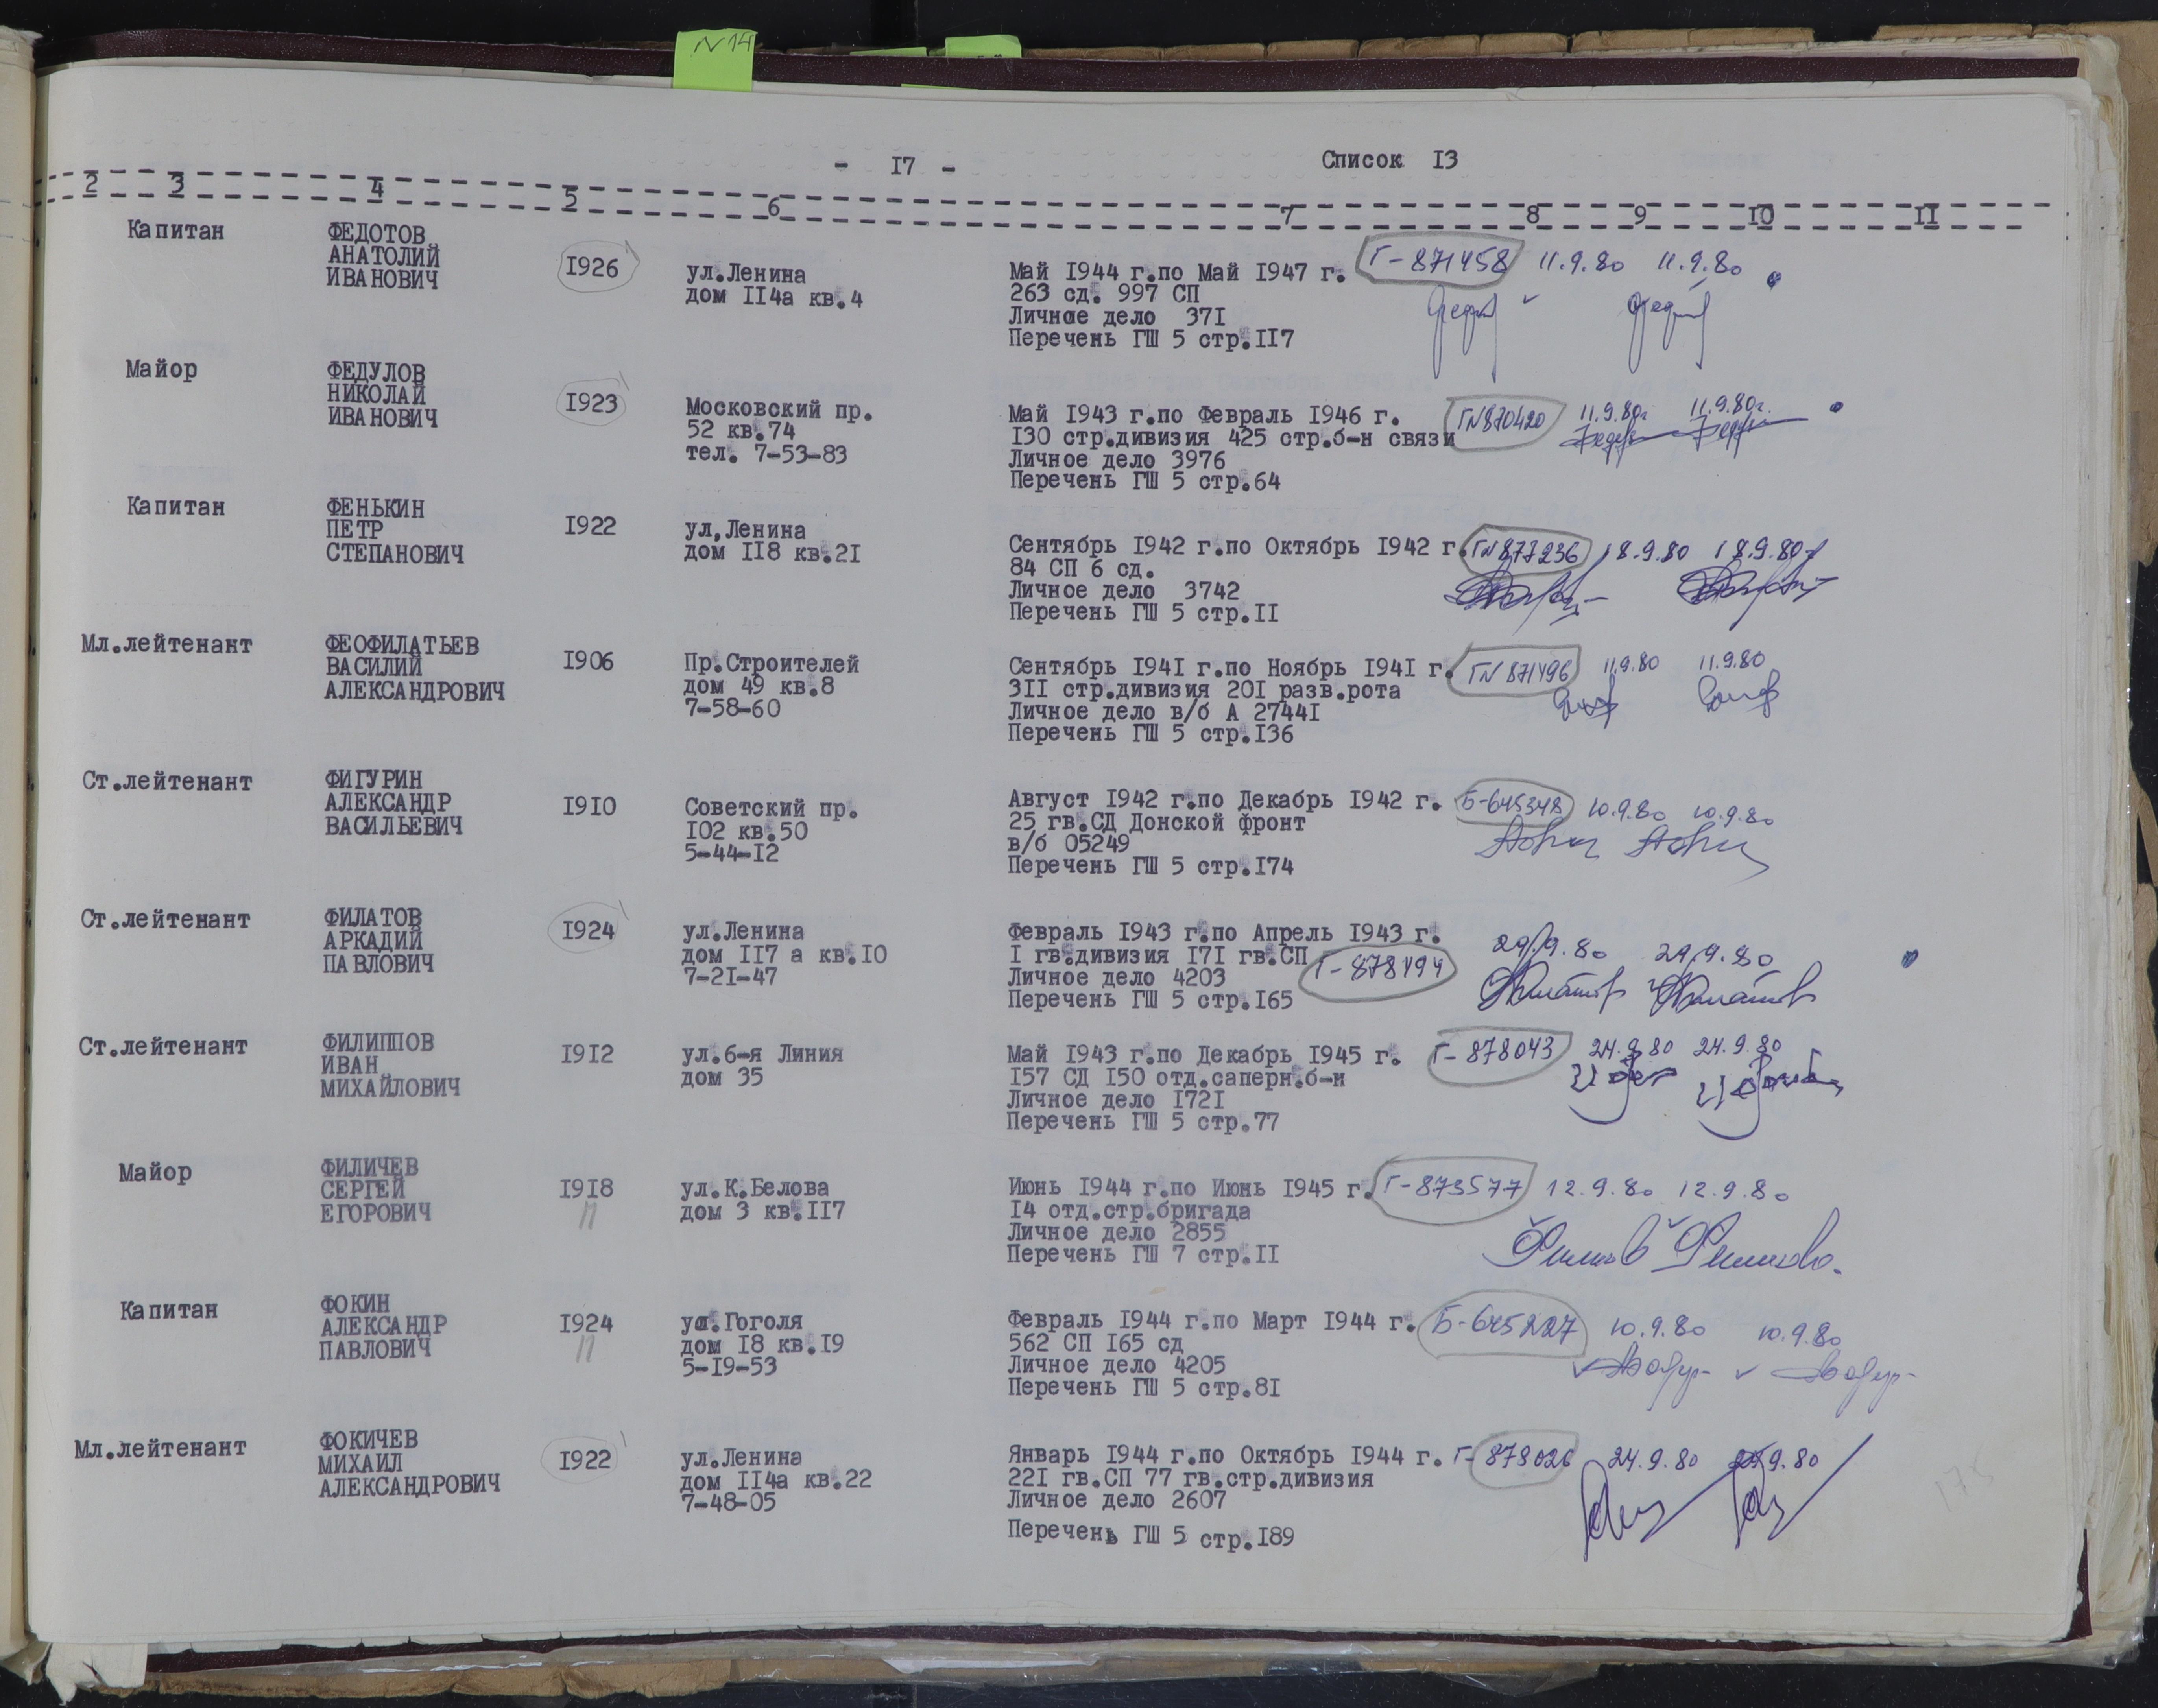 N 14
- I7 -
Список I3
2 3 4 5 6 7 8 9 I0 II
Капитан
ФЕДОТОВ
АНАТОЛИЙ
ИВАНОВИЧ
I926
ул.Ленина
дом II4а кв.4
Май I944 г.по Май I947 г.
263 сд. 997 СП
Личное дело 37I
Перечень ГШ 5 стр.II7
Г-871458 11.9.80 11.9.80
Майор
ФЕДУЛОВ
НИКОЛАЙ
ИВАНОВИЧ
I923
Московский пр.
52 кв.74
тел. 7-53-83
Май I943 г.по Февраль I946 г.
I30 стр.дивизия 425 стр.б-н связи
Личное дело 3976
Перечень ГШ 5 стр.64
ГN870420 11.9.80г 11.9.80г.
Капитан
ФЕНЬКИН
ПЕТР
СТЕПАНОВИЧ
I922
ул,Ленина
дом II8 кв.2I
Сентябрь I942 г.по Октябрь I942 г.
84 СП 6 сд.
Личное дело 3742
Перечень ГШ 5 стр.II
ГN877236 18.9.80 18.9.80
Мл.лейтенант
ФЕОФИЛАТЬЕВ
ВАСИЛИЙ
АЛЕКСАНДРОВИЧ
I906
Пр.Строителей
дом 49 кв.8
7-58-60
Сентябрь I94I г.по Ноябрь I94I г.
3II стр.дивизия 20I разв.рота
Личное дело в/б А 2744I
Перечень ГШ 5 стр.I36
ГN871496 11.9.80 11.9.80
Ст.лейтенант
ФИГУРИН
АЛЕКСАНДР
ВАСИЛЬЕВИЧ
I9I0
Советский пр.
I02 кв.50
5-44-I2
Август I942 г.по Декабрь I942 г.
25 гв.СД Донской фронт
в/б 05249
Перечень ГШ 5 стр.I74
Б-645348 10.9.80 10.9.80
Ст.лейтенант
ФИЛАТОВ
АРКАДИЙ
ПАВЛОВИЧ
I924
ул.Ленина
дом II7 а кв.I0
7-2I-47
Февраль I943 г.по Апрель I943 г.
I гв.дивизия I7I гв.СП
Личное дело 4203
Перечень ГШ 5 стр.I65
Г-878494 29/9.80 29/9.80
Филатов Филатов
Ст.лейтенант
ФИЛИППОВ
ИВАН
МИХАЙЛОВИЧ
I9I2
ул.6-я Линия
дом 35
Май I943 г.по Декабрь I945 г.
I57 СД I50 отд.саперн.б-н
Личное дело I72I
Перечень ГШ 5 стр.77
Г-878043 24.9.80 24.9.80
Майор
ФИЛИЧЕВ
СЕРГЕЙ
ЕГОРОВИЧ
I9I8
ул.К.Белова
дом 3 кв.II7
Июнь I944 г.по Июнь I945 г.
I4 отд.стр.бригада
Личное дело 2855
Перечень ГШ 7 стр.II
Г-873577 12.9.80 12.9.80
Капитан
ФОКИН
АЛЕКСАНДР
ПАВЛОВИЧ
I924
ул.Гоголя
дом I8 кв.I9
5-I9-53
Февраль I944 г.по Март I944 г.
562 СП I65 сд
Личное дело 4205
Перечень ГШ 5 стр.8I
Б-645227 10.9.80 10.9.80
Мл.лейтенант
ФОКИЧЕВ
МИХАИЛ
АЛЕКСАНДРОВИЧ
I922
ул.Ленина
дом II4а кв.22
7-48-05
Январь I944 г.по Октябрь I944 г.
22I гв.СП 77 гв.стр.дивизия
Личное дело 2607
Перечень ГШ 5 стр.I89
Г-878026 24.9.80 9.80